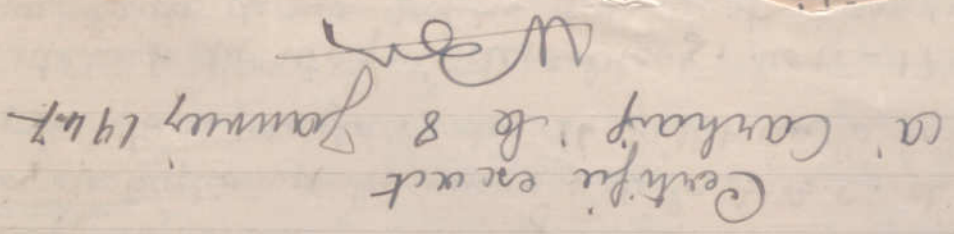 Certifié exact
à Carhaix le 8 Janvier 1947